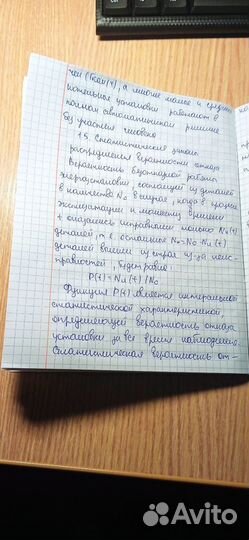 чей (Гсал/ч), а многие малые и средние
котельные установки работают в
полном автоматическом режиме
без участия человека
1.5. Статистический закон
распределения вероятности отказа
Вероятность безотказной работы
энергоустановки, состоящей из деталей
в количестве N₀ в штуках, когда в процессе
эксплуатации к моменту времени
t оказались исправными только Nu(t)
деталей, т.е. остальные N₀-Nu(t)
деталей вышли из строя из-за неис-
правностей, будет равна
P(t) = Nu(t) / N₀
Функция P(t) является интегральной
статистической характеристикой,
определяющей вероятность отказа
установки за всё время наблюдения
Статистическая вероятность от-
Avito